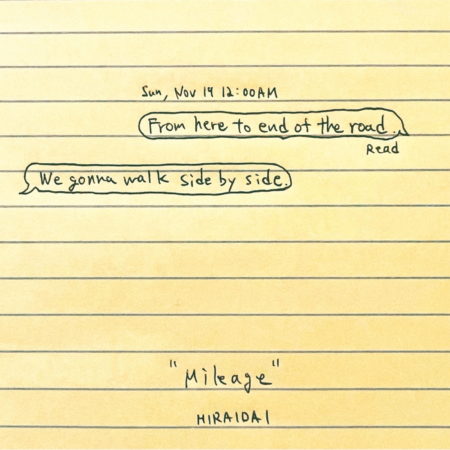 Sun, Nov 19 12:00AM
From here to end of the road.
Read
We gonna walk side by side.
"Mileage"
HIRAIDAI